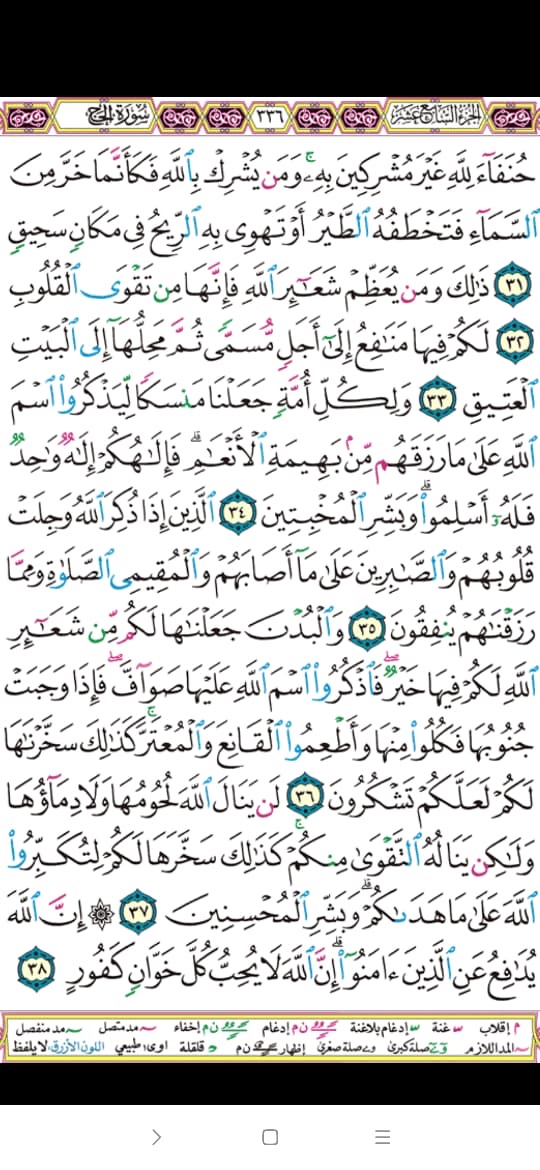 الجزء السابع عشر ٣٣٦ سورة الحج
حُنَفَآءَ لِلَّهِ غَيْرَ مُشْرِكِينَ بِهِۦۚ وَمَن يُشْرِكْ بِٱللَّهِ فَكَأَنَّمَا خَرَّ مِنَ
ٱلسَّمَآءِ فَتَخْطَفُهُ ٱلطَّيْرُ أَوْ تَهْوِى بِهِ ٱلرِّيحُ فِى مَكَانٍ سَحِيقٍ
٣١ ذَٰلِكَ وَمَن يُعَظِّمْ شَعَـٰٓئِرَ ٱللَّهِ فَإِنَّهَا مِن تَقْوَى ٱلْقُلُوبِ
٣٢ لَكُمْ فِيهَا مَنَـٰفِعُ إِلَىٰٓ أَجَلٍ مُّسَمًّى ثُمَّ مَحِلُّهَآ إِلَى ٱلْبَيْتِ
ٱلْعَتِيقِ ٣٣ وَلِكُلِّ أُمَّةٍ جَعَلْنَا مَنسَكًا لِّيَذْكُرُوا۟ ٱسْمَ
ٱللَّهِ عَلَىٰ مَا رَزَقَهُم مِّنۢ بَهِيمَةِ ٱلْأَنْعَـٰمِۗ فَإِلَـٰهُكُمْ إِلَـٰهٌ وَٰحِدٌ
فَلَهُۥٓ أَسْلِمُوا۟ۗ وَبَشِّرِ ٱلْمُخْبِتِينَ ٣٤ ٱلَّذِينَ إِذَا ذُكِرَ ٱللَّهُ وَجِلَتْ
قُلُوبُهُمْ وَٱلصَّـٰبِرِينَ عَلَىٰ مَآ أَصَابَهُمْ وَٱلْمُقِيمِى ٱلصَّلَوٰةِ وَمِمَّا
رَزَقْنَـٰهُمْ يُنفِقُونَ ٣٥ وَٱلْبُدْنَ جَعَلْنَـٰهَا لَكُم مِّن شَعَـٰٓئِرِ
ٱللَّهِ لَكُمْ فِيهَا خَيْرٌۖ فَٱذْكُرُوا۟ ٱسْمَ ٱللَّهِ عَلَيْهَا صَوَآفَّۖ فَإِذَا وَجَبَتْ
جُنُوبُهَا فَكُلُوا۟ مِنْهَا وَأَطْعِمُوا۟ ٱلْقَانِعَ وَٱلْمُعْتَرَّۚ كَذَٰلِكَ سَخَّرْنَـٰهَا
لَكُمْ لَعَلَّكُمْ تَشْكُرُونَ ٣٦ لَن يَنَالَ ٱللَّهَ لُحُومُهَا وَلَا دِمَآؤُهَا
وَلَـٰكِن يَنَالُهُ ٱلتَّقْوَىٰ مِنكُمْۚ كَذَٰلِكَ سَخَّرَهَا لَكُمْ لِتُكَبِّرُوا۟
ٱللَّهَ عَلَىٰ مَا هَدَىٰكُمْۗ وَبَشِّرِ ٱلْمُحْسِنِينَ ٣٧ ۞ إِنَّ ٱللَّهَ
يُدَٰفِعُ عَنِ ٱلَّذِينَ ءَامَنُوٓا۟ۗ إِنَّ ٱللَّهَ لَا يُحِبُّ كُلَّ خَوَّانٍ كَفُورٍ ٣٨
م إقلاب غنة إدغام بلاغنة ن م إدغام ن م إخفاء مد متصل مد منفصل
المد اللازم صلة كبرى صلة صغرى إظهار ن م قلقلة اوى: طبيعي اللون الأزرق: لا يلفظ